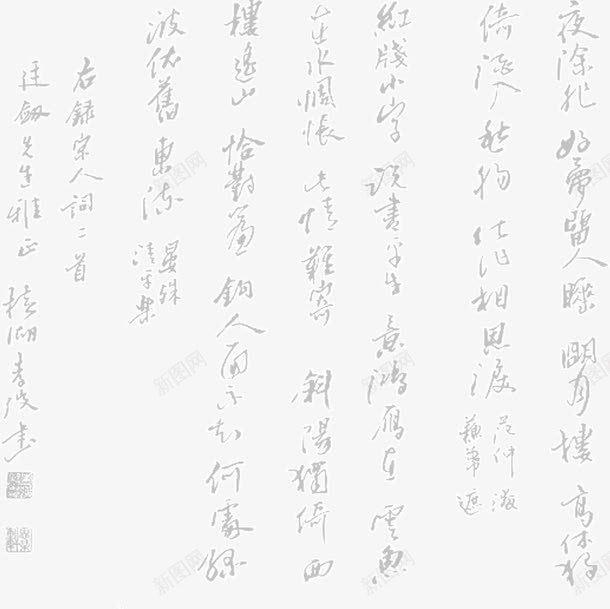 夜除非 好夢留人睡 明月樓 高休獨
倚 酒入愁腸 化作相思淚
范仲淹
蘇幕遮
紅牋小字 說盡平生意 鴻雁在雲魚
在水 惆悵此情難寄 斜陽獨倚西
樓 遙山恰對簾鉤 人面不知何處 綠
波依舊東流
晏殊
清平樂
右錄宋人詞二首
先生雅正